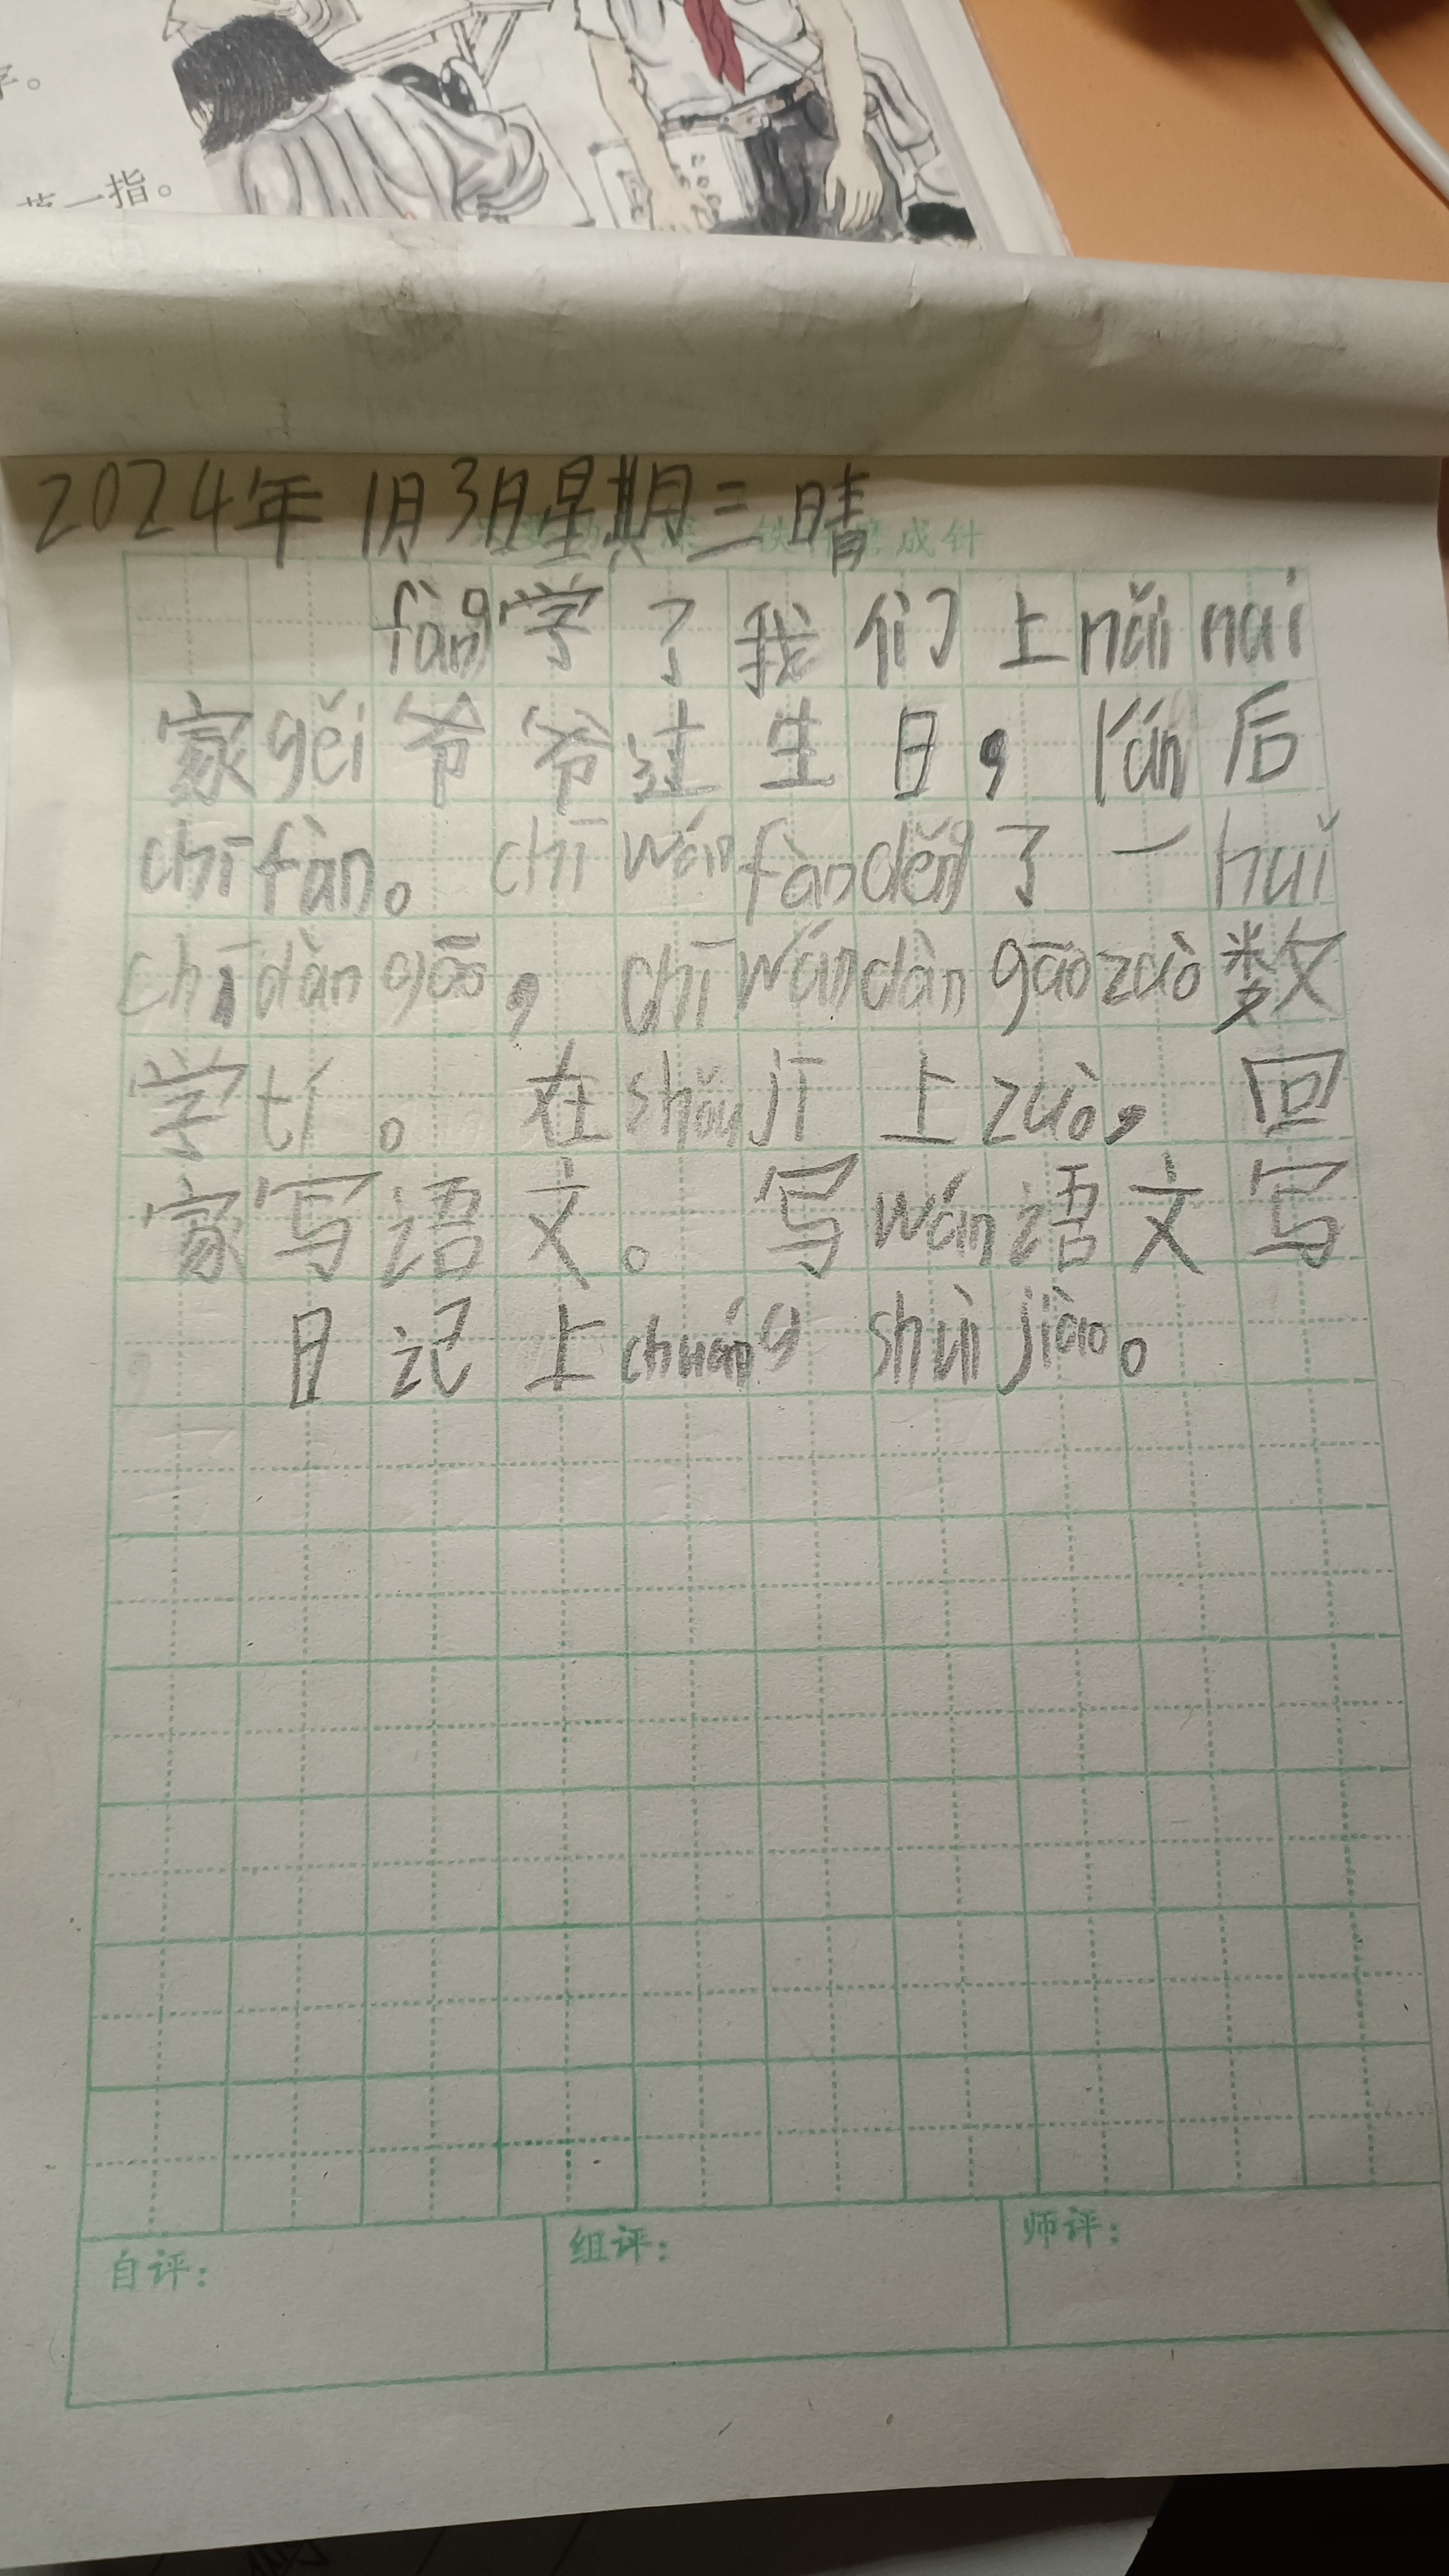 字。
一指。
2024年1月3日星期三晴
成针
fàng学了我们上nǎi nai
家gěi爷爷过生日，rán后
chī fàn。chī wán fàn děng了一huǐ
chī dàn gāo，chī wán dàn gāo zuò数
学tí。在shǒu jī上zuò，回
家写语文。写wán语文写
日记上chuáng shuì jiào。
自评：
组评：
师评：